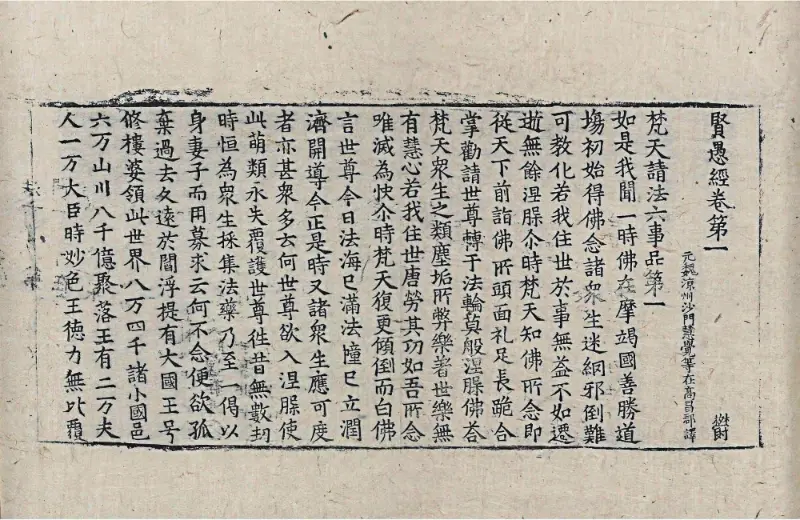 賢愚經卷第一
元魏涼州沙門慧覺等在高昌郡譯
梵天請法六事品第一
如是我聞一時佛在摩竭國善勝道
塲初始得佛念諸衆生迷網邪倒難
可教化若我住世於事無益不如遷
逝無餘涅槃尒時梵天知佛所念即
從天下前詣佛所頭面礼足長跪合
掌勸請世尊轉于法輪莫般涅槃佛荅
梵天衆生之類塵垢所弊樂著世樂無
有慧心若我住世唐勞其功如吾所念
唯滅為快尒時梵天復更傾倒而白佛
言世尊今日法海已滿法幢已立潤
濟開導今正是時又諸衆生應可度
者亦甚衆多云何世尊欲入涅槃使
此萌類永失覆護世尊往昔無數劫
時恒為衆生採集法藥乃至一偈以
身妻子而用募求云何不念便欲孤
棄過去久遠於閻浮提有大國王号
修樓婆領此世界八万四千諸小國邑
六万山川八千億聚落王有二万夫
人一万大臣時妙色王德力無比覆